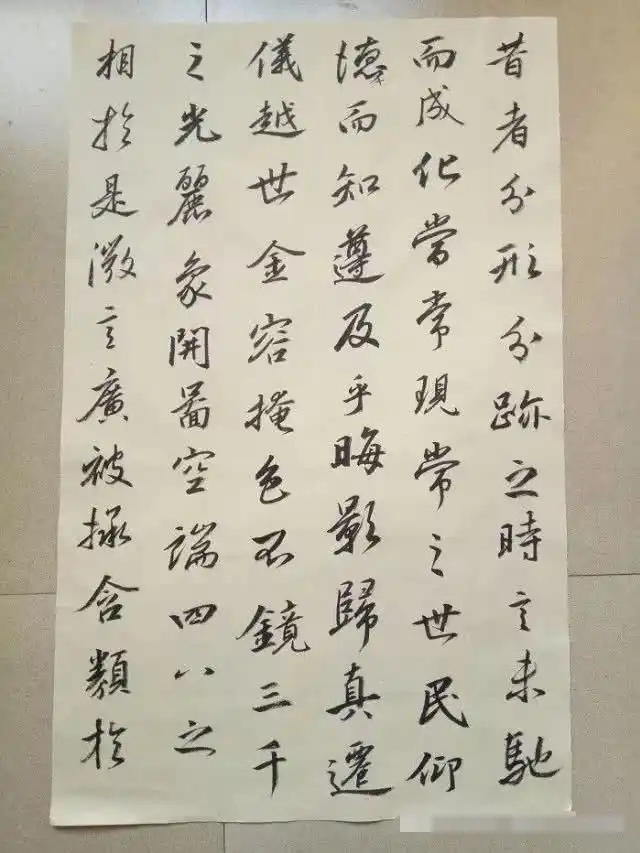 昔者分形分跡之時言未馳
而成化當常現常之世民仰
德而知遵及乎晦影歸真遷
儀越世金容掩色不鏡三千
之光麗象開圖空端四八之
相於是微言廣被拯含類於